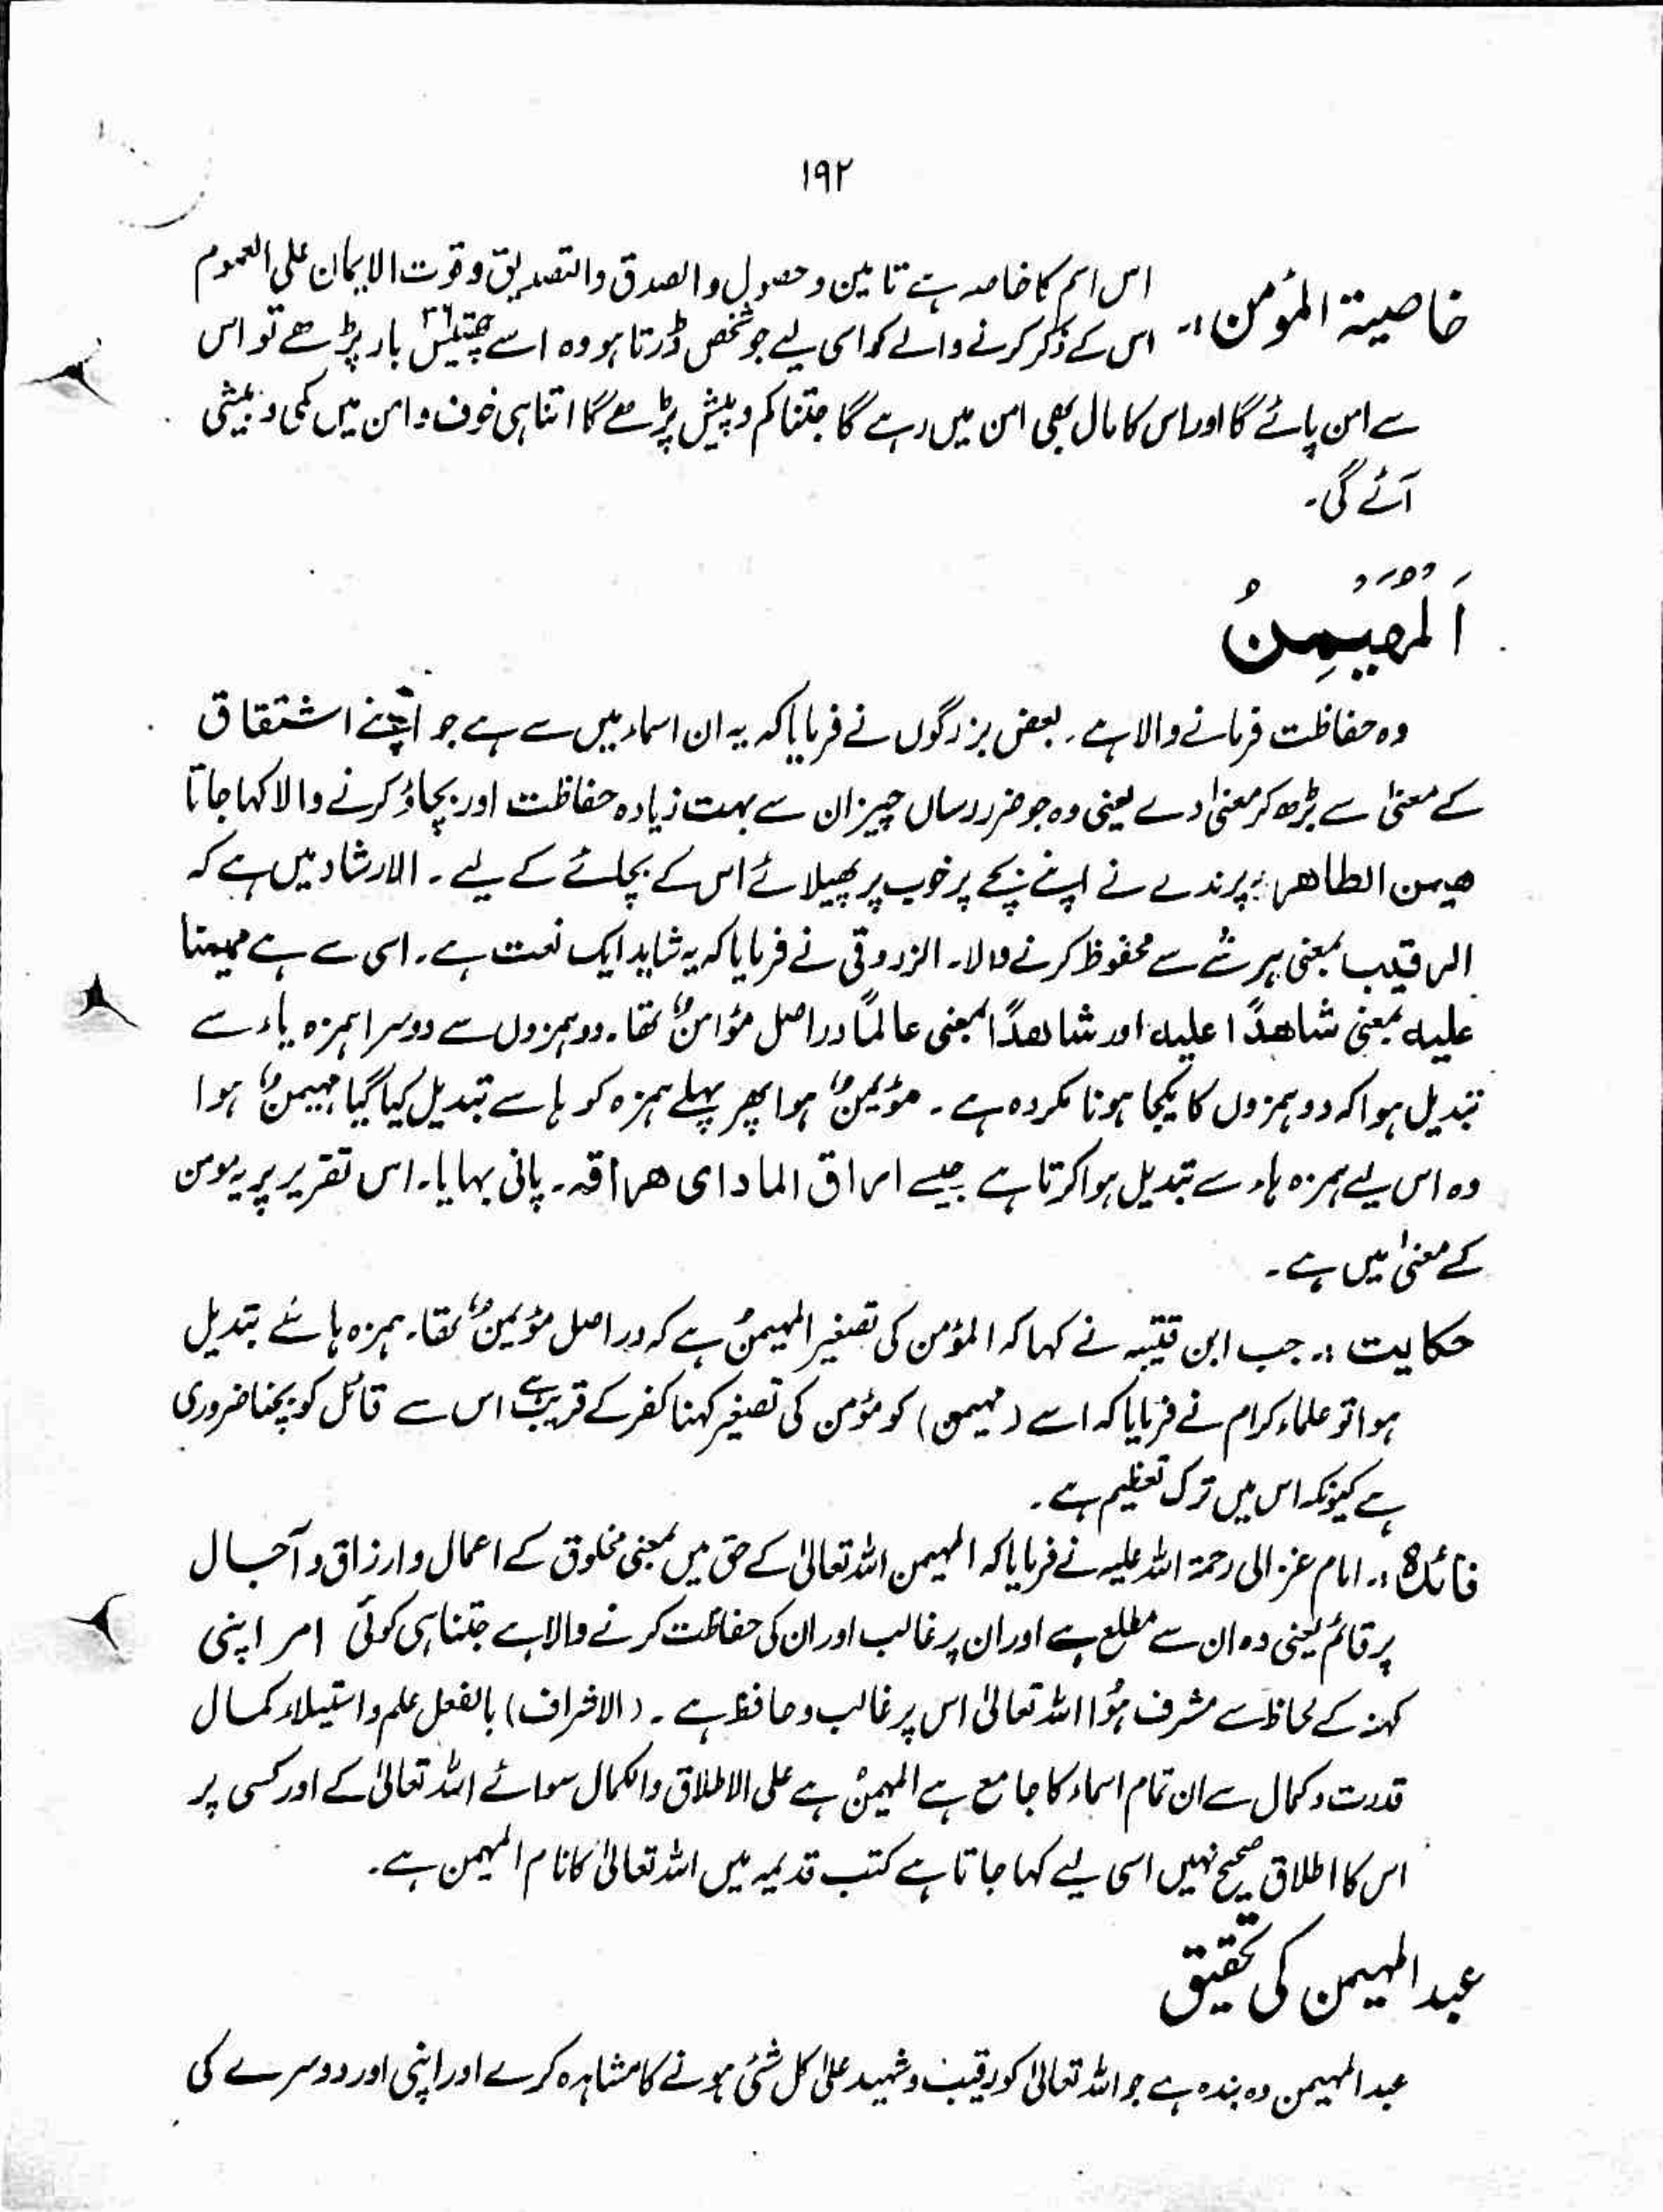 ۱۹۲
خاصیۃ المؤمن :۔ اس اسم کا خاصہ ہے تامین و حصول و الصدق والتصدیق و قوت الایمان علی العموم
اس کے ذکر کرنے والے کو اسی لیے جو شخص ڈرتا ہو وہ اسے چھتیس ۳۶ بار پڑھے تو اس
سے امن پائے گا اور اس کا مال بھی امن میں رہے گا جتنا کم و بیش پڑھے گا اتنا ہی خوف و امن میں کمی و بیشی
آئے گی۔
اَلْمُهَيْمِنُ
وہ حفاظت فرمانے والا ہے۔ بعض بزرگوں نے فرمایا کہ یہ ان اسماء میں سے ہے جو اپنے اشتقاق
کے معنیٰ سے بڑھ کر معنیٰ دے یعنی وہ جو ضرر رساں چیز ان سے بہت زیادہ حفاظت اور بچاؤ کرنے والا کہا جاتا
ھیمن الطاھر : پرندے نے اپنے بچے پر خوب پر پھیلائے اس کے بچانے کے لیے ۔ الارشاد میں ہے کہ
الرقیب بمعنی ہر شے سے محفوظ کرنے والا۔ الزروقی نے فرمایا کہ یہ شاید ایک نعت ہے۔ اسی سے ہے مہیمنا
علیہ بمعنی شاھدًا علیہ اور شاھدًا بمعنی عالمًا دراصل مؤامنٌ تھا۔ دو ہمزوں سے دوسرا ہمزہ یاء سے
تبدیل ہوا کہ دو ہمزوں کا یکجا ہونا مکروہ ہے ۔ مؤیمنٌ ہوا پھر پہلے ہمزہ کو ہا سے تبدیل کیا گیا مہیمنٌ ہوا
وہ اس لیے ہمزہ ہاء سے تبدیل ہوا کرتا ہے جیسے اراق الماء ای ھراقہ۔ پانی بہایا۔ اس تقریر پر یہ مومن
کے معنیٰ میں ہے ۔
حکایت :۔ جب ابن قتیبہ نے کہا کہ المؤمن کی تصغیر المہیمنُ ہے کہ دراصل مؤیمنٌ تھا۔ ہمزہ ہا سے تبدیل
ہوا تو علماء کرام نے فرمایا کہ اسے (مہیمن) کو مؤمن کی تصغیر کہنا کفر کے قریب ہے اس سے قائل کو بچنا ضروری
ہے کیونکہ اس میں ترک تعظیم ہے ۔
فائدہ :۔ امام غزالی رحمۃ اللہ علیہ نے فرمایا کہ المہیمن اللہ تعالیٰ کے حق میں بمعنی مخلوق کے اعمال و ارزاق و آجال
پر قائم یعنی وہ ان سے مطلع ہے اور ان پر غالب اور ان کی حفاظت کرنے والا ہے جتنا ہی کوئی امر اپنی
کہنہ کے لحاظ سے مشرف ہُوا اللہ تعالیٰ اس پر غالب و حافظ ہے ۔ (الاشراف) بالفعل علم و استیلاء کمال
قدرت و کمال سے ان تمام اسماء کا جامع ہے المہیمنُ ہے علی الاطلاق والکمال سوائے اللہ تعالیٰ کے اور کسی پر
اس کا اطلاق صحیح نہیں اسی لیے کہا جاتا ہے کتب قدیمہ میں اللہ تعالیٰ کا نام المہیمن ہے۔
عبد المہیمن کی تحقیق
عبد المہیمن وہ بندہ ہے جو اللہ تعالیٰ کو رقیب و شہید علیٰ کل شئی ہونے کا مشاہدہ کرے اور اپنی اور دوسرے کی